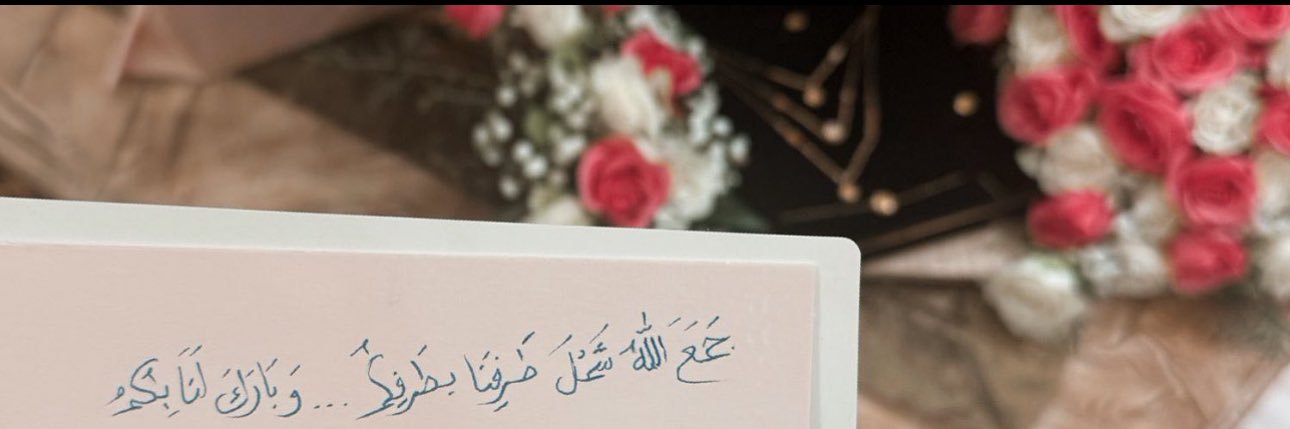 جَمَعَ اللهُ شَمْلَ طَرَفِنَا بطَرَفِكُمْ ... وَبَارَكَ لَنَا بِكُمْ